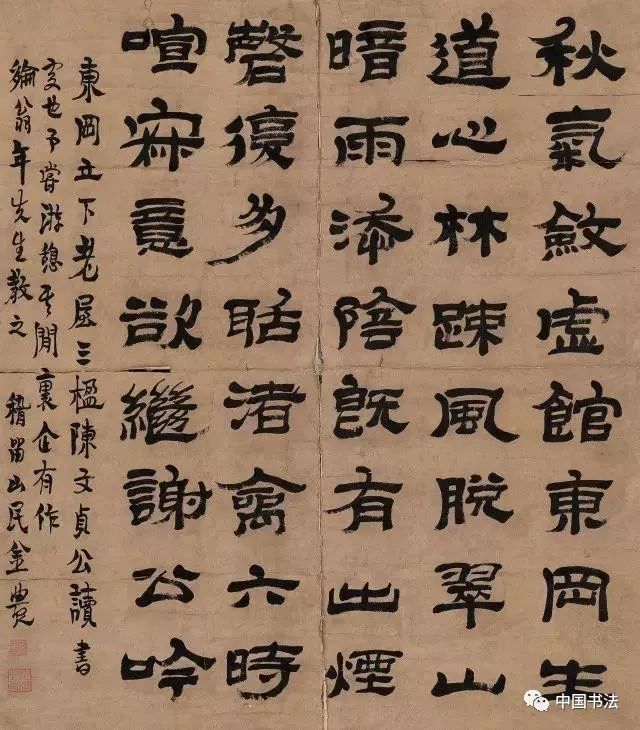 秋氣斂虛館東岡生
道心林疎風脫翠山
暗雨添陰既有出煙
磬復多聒渚禽六時
喧寂意欲繼謝公吟
東岡丘下老屋三楹陳文貞公讀書
處也予嘗游憩其閒裏企有作
綸翁年先生教之 稽留山民金農
中国书法